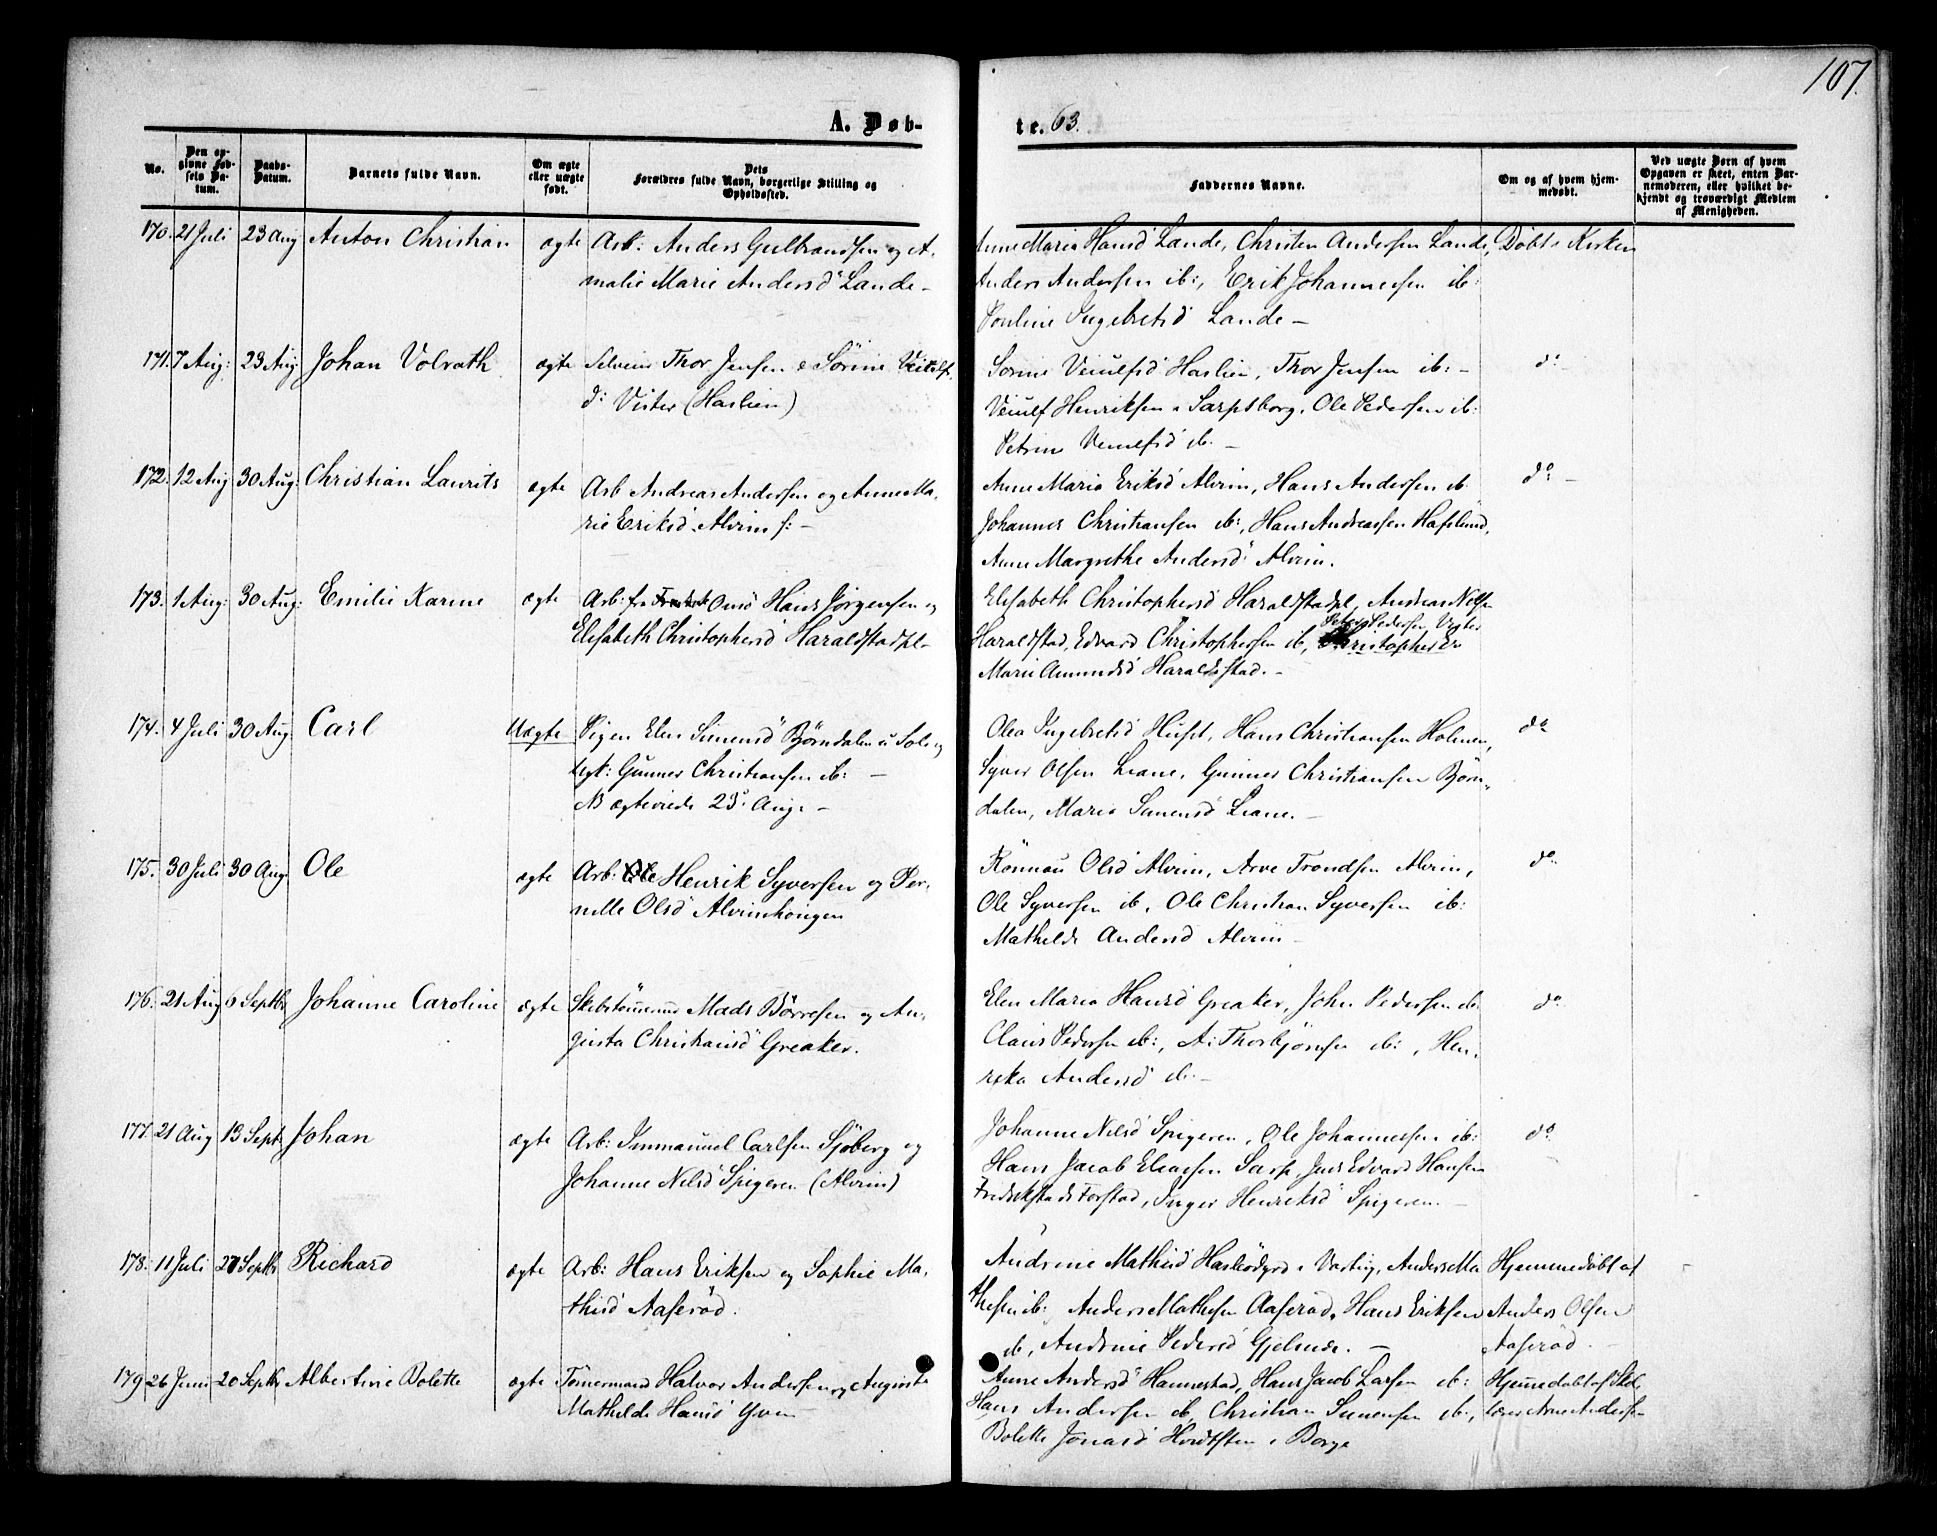 107.
A. Døb-
te. 63.
No.
Den opgivne Fødsels Datum.
Daabs-Datum.
Barnets fulde Navn.
Om ægte eller uægte født.
Dets Forældres fulde Navn, borgerlige Stilling og Opholdssted.
Faddernes Navne.
Om og af hvem hjemmedøbt.
Ved uægte Børn af hvem Opgaven er skeet, enten Barnemoderen, eller hvilket bekjendt og troværdigt Medlem af Menigheden.
170. 21 Juli 23 Aug Anton Christian ægte Arb: Anders Gulbrandsen og A-
malie Marie Andersd Lande -
Anne Maria Hansd Lande, Christen Andersen Lande, Døbt i Kirken
Anders Andersen ib:, Erik Johannesen ib:
Pouline Ingebretsd Lande -
171. 7 Aug: 23 Aug Johan Volrath ægte Selveier Thor Jensen & Sørine Veiulfs
d: Vister (Haslien)
Sørine Veiulfsd Haslien, Thor Jensen ib: - do
Veiulf Henriksen i Sarpsborg, Ole Pedersen ib:
Petrine Veiulfsd ib. -
172. 12 Aug 30 Aug: Christian Laurits ægte Arb Andreas Andersen og Anne Ma-
rie Eriksd Alvim f: -
Anne Maria Eriksd Alvim, Hans Andersen ib. do -
Johannes Christiansen ib:, Hans Andreassen Hafslund,
Anne Margrethe Andersd Alvim.
173. 1 Aug: 30 Aug: Emilie Karine ægte Arb: fra Onsø Hans Jørgensen og
Elisabeth Christophersd Haraldstadpl-
Elisabeth Christophersd Haraldstadpl, Andreas Nilsen
Haraldstad, Edvard Christophersen ib, Pedersen Vister
Marie Amundsd Haraldstad. -
174. 4 Juli 30 Aug: Carl Uægte Pigen Elen Simensd Bjørndalen og
Ugk: Gunner Christiansen ib: -
NB ægteviede 23 Aug: -
Olea Ingebretsd Huset, Hans Christiansen Holmen, do
Syver Olsen Liane, Gunner Christiansen Bjørn-
dalen, Maria Simensd Liane. -
175. 30 Juli 30 Aug. Ole ægte Arb: Ole Henrik Syversen og Per-
nille Olsd Alvimhougen
Rønnau Olsd Alvim, Arve Trondsen Alvim, do
Ole Syversen ib, Ole Christian Syversen ib:
Mathilde Andersd Alvim -
176. 21 Aug 6 Septbr Johanne Caroline ægte Skibstømmerm Mads Børresen og Au-
gusta Christiansd Greaker.
Elen Maria Hansd Greaker, John Pedersen ib. do
Claus Pedersen ib:, A: Thorbjørnsen ib:, Hen-
rika Andersd ib. -
177. 21 Aug 13 Sept: Johan ægte Arb: Immanuel Carlsen Sjøberg og
Johanne Nilsd Spigeren (Alvim)
Johanne Nilsd Spigeren, Ole Johannessen ib: do
Hans Jacob Eliassen Sarp, Jens Edvard Hansen
Fredrikstads Forstad, Inger Henriksd Spigeren. -
178. 11 Juli 27 Septbr Richard ægte Arb: Hans Eriksen og Sophie Ma-
thisd Aaserød.
Andrine Mathisd i Varteig, Anders Ma Hjemmedøbt af
thesen ib:, Anders Mathesen Aaserød, Hans Eriksen Anders Olsen
ib, Andrine Pedersd Gjelsnæs. - Aaserød. -
179 26 Juni 20 Septbr Albertine Bolette ægte Tømermand Halvor Andersen og Augusta
Mathilde Hansd Yven
Anne Andersd Hannestad, Hans Jacob Larsen ib: Hjemmedøbt af Skol
Hans Andersen ib, Christian Simensen ib:, lærer Arne Andersen
Bolette Jonasd i Borge